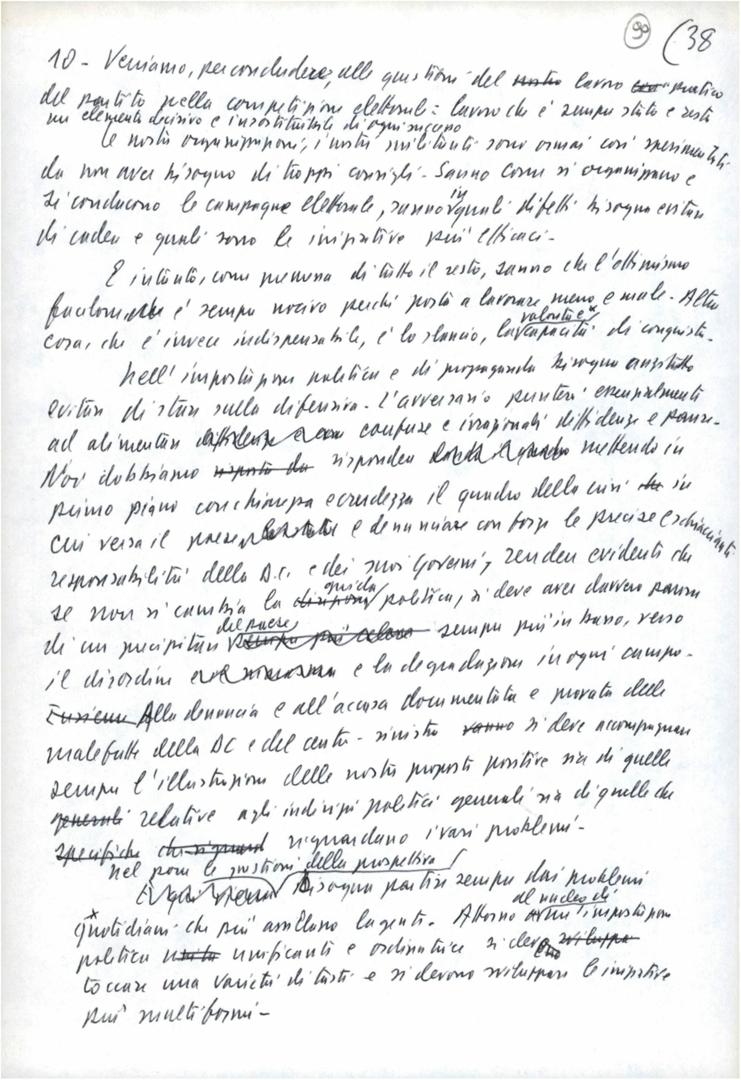 90 (38
10 - Veniamo, per concludere, alle questioni del nostro lavoro pratico
del partito nella competizione elettorale: lavoro che è sempre stato e resta
un elemento decisivo e insostituibile di ogni successo
Le nostre organizzazioni, i nostri militanti sono ormai così sperimentati
da non aver bisogno di troppi consigli - Sanno come si organizzano e
si conducono le campagne elettorali, sanno in quali difetti bisogna evitare
di cadere e quali sono le iniziative più efficaci -
E intanto, come premessa di tutto il resto, sanno che l'ottimismo
facilone è sempre nocivo perché porta a lavorare meno e male - Altra
cosa, che è invece indispensabile, è lo slancio, la volontà e
capacità di conquista -
Nell'impostazione politica e di propaganda bisogna anzitutto
evitare di stare sulla difensiva - L'avversario punterà essenzialmente
ad alimentare confuse e irrazionali diffidenze e paure -
Noi dobbiamo risposta da rispondere mettendo in
primo piano con chiarezza e crudezza il quadro della crisi che in
cui versa il paese e denunciare con forza le precise e schiaccianti
responsabilità della D.C. e dei suoi Governi, rendere evidente che
se non si cambia la direzione guida politica, si deve aver davvero paura
di un precipitare del paese sempre più veloce sempre più in basso, verso
il disordine e la degradazione in ogni campo -
Insieme Alla denuncia e all'accusa documentata e provata delle
malefatte della DC e del centro-sinistra vanno si deve accompagnare
sempre l'illustrazione delle nostre proposte positive sia di quelle
generali relative agli indirizzi politici generali sia di quelle che
specifiche che riguardano i vari problemi -
Nel porre le questioni della prospettiva
bisogna partire sempre dai problemi
quotidiani che più assillano la gente - Attorno al nucleo di impostazione
politica unificante e ordinatrice si devono sviluppare
toccare una varietà di tasti e si devono sviluppare le iniziative
più multiformi -